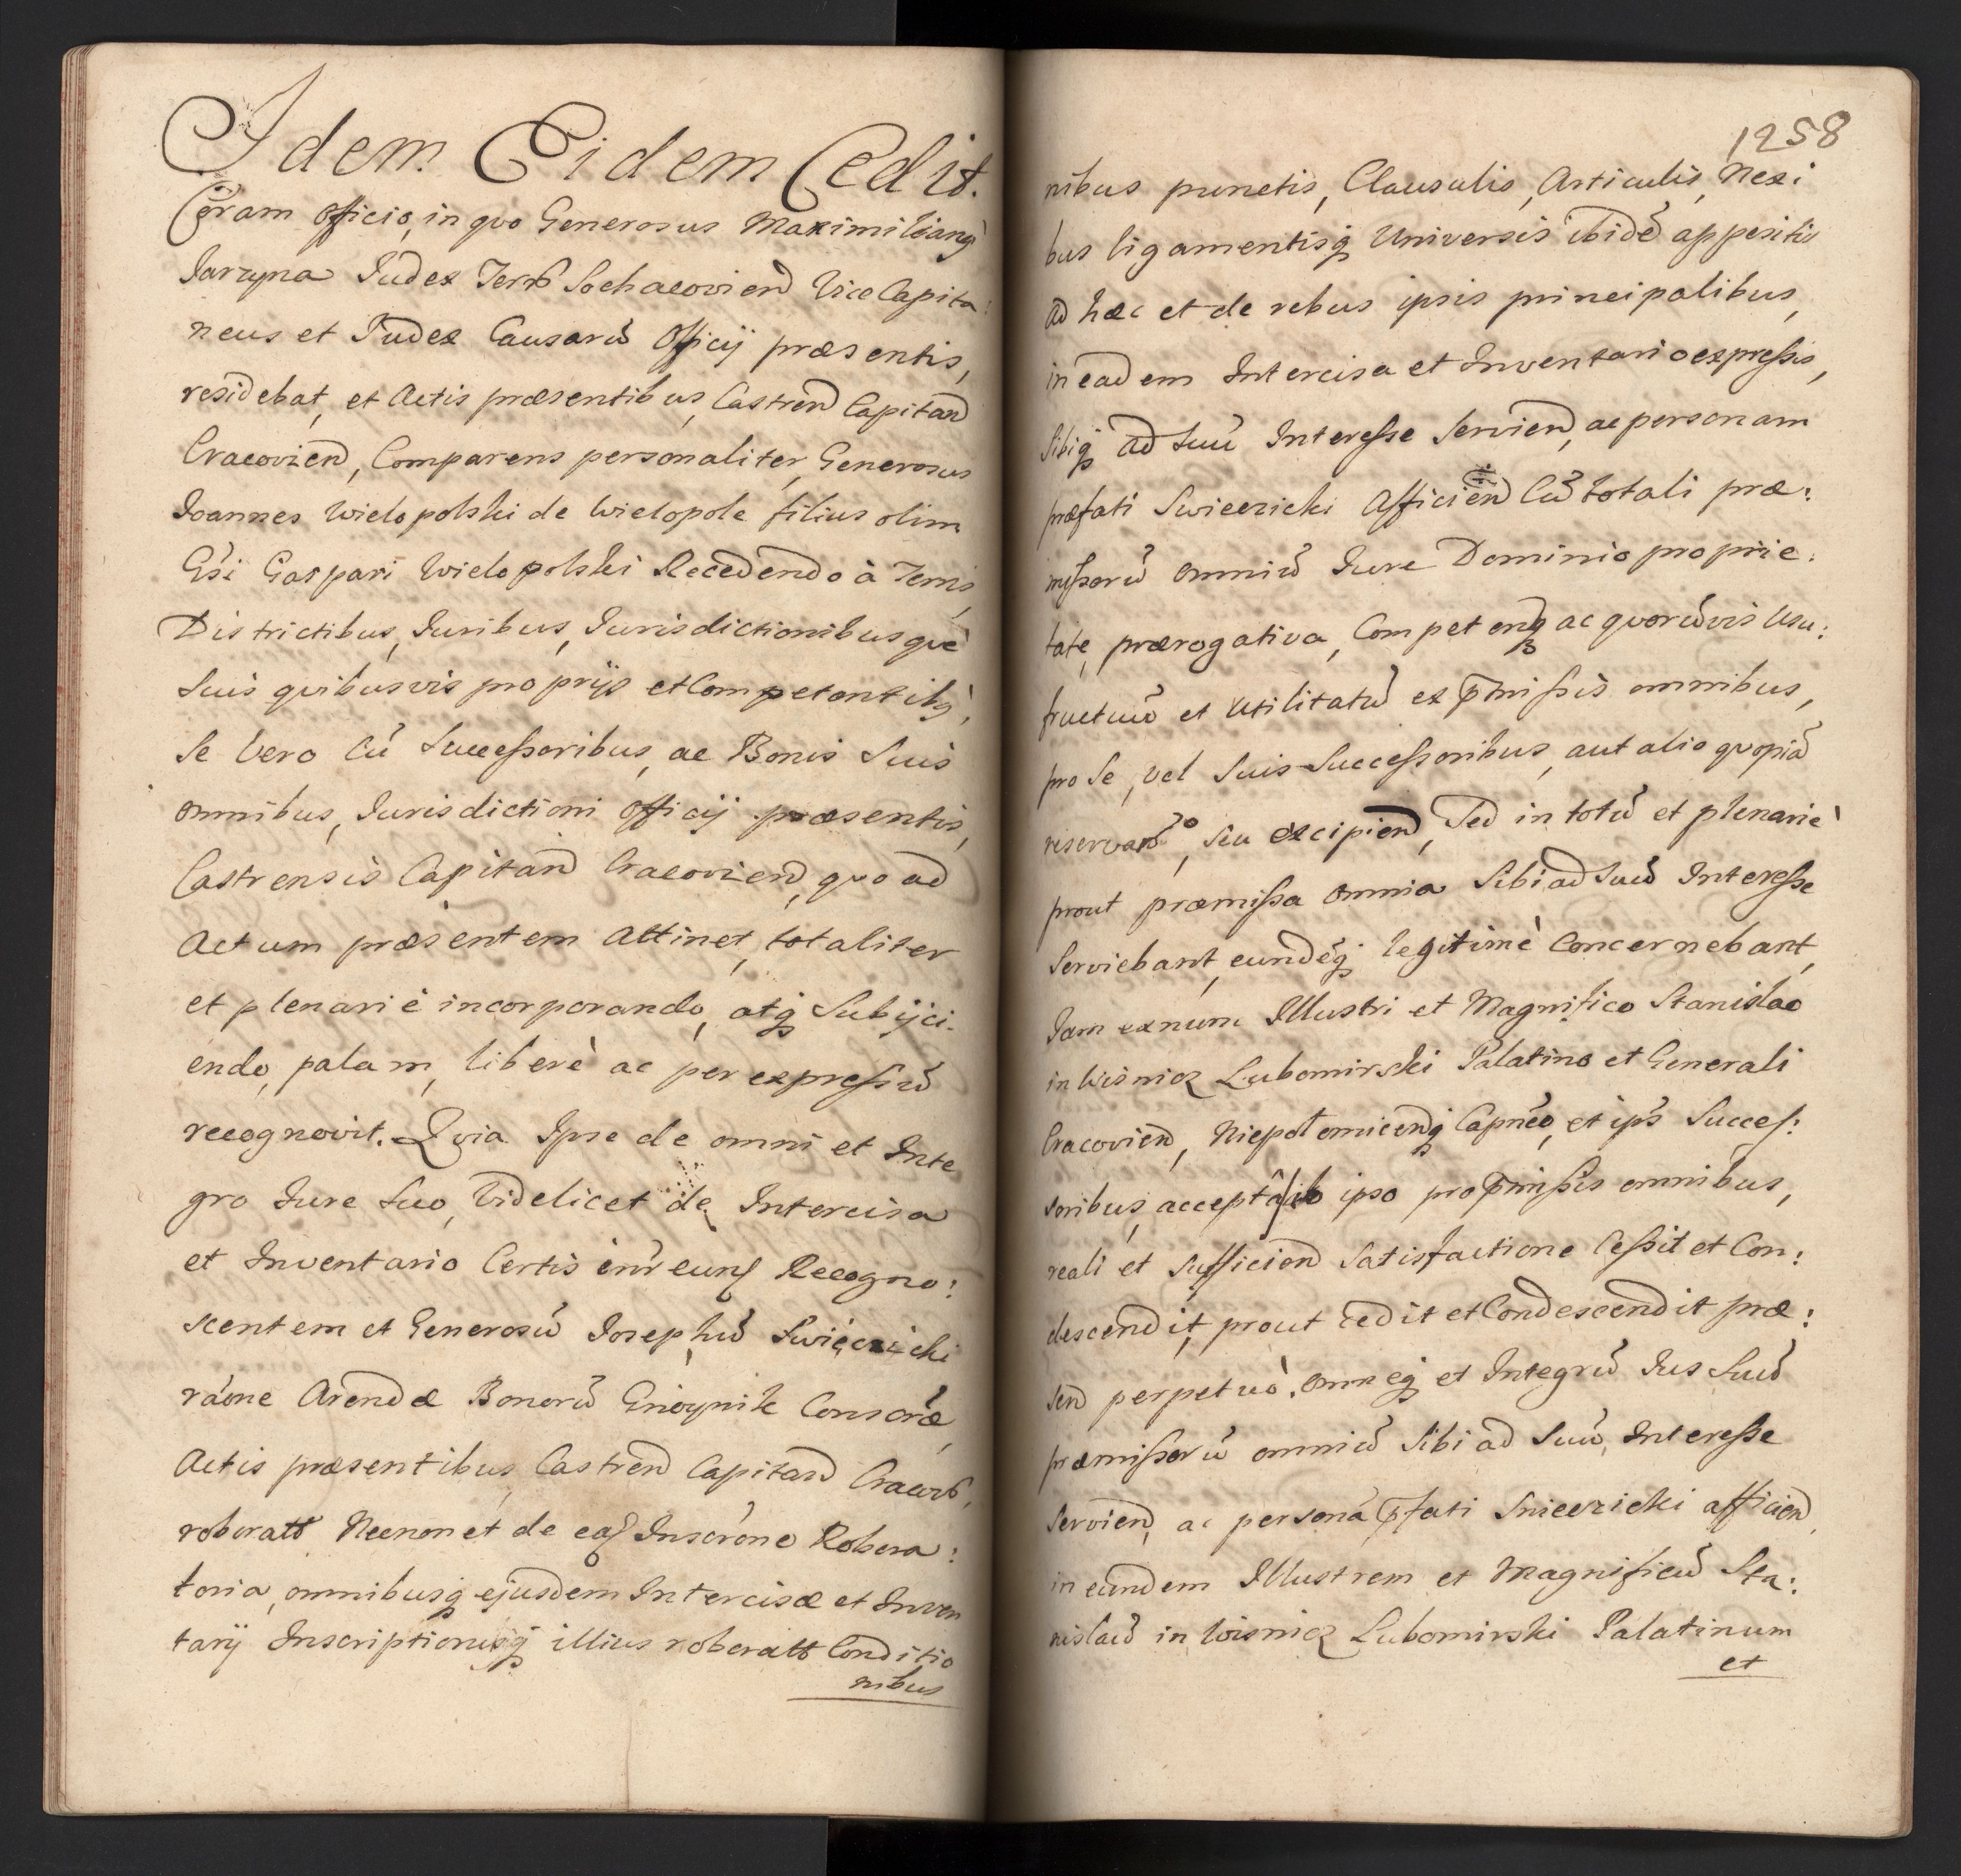 Idem Eidem Cedit.
Coram Officio, in quo Generosus Maximilianq̀
Jarzyna Judex Terrs Sochacovien̄ Vice Capita:
neus et Judex Causarū Officij præsentis,
residebat, et Actis præsentibus, Castren̄ Capitan̄
Cracovien̄, Comparens personaliter, Generosus
Joannes Wielopolski de Wielopole filius olim
Gsi Gaspari Wielopolski Recedendo à Terris,
Districtibus, Juribus, Jurisdictionibusquè
Suis quibusvis proprijs et Competentibq̀,
Se Vero Cū Successoribus, ac Bonis Suis
omnibus, Jurisdictioni Officij præsentis,
Castrensis Capitan̄ Cracovien̄, quo ad
Actum præsentem attinet, totaliter
et plenariè incorporando, atq̨ Subijci-
endo, palam, liberè ac per expressū
recognovit. Quia Ipse de omni et Inte
gro Jure Suo, Videlicet de Intercisa
et Inventario Certis inr̄ eunḍ Recogno:
scentem et Generosū Josephū Swięcicki
rāone Arendæ Bonorū Gnoynik Conscr̄æ,
Actis præsentibus, Castren̄ Capitan̄ Cracovs,
roboratt Necnon et de eaḍ Inscrōne Robora:
toria, omnibusq̨ ejusdem Intercisæ et Inven
tarij Inscriptionisq̨ illius roboratt Conditio
nibus
1258
nibus punctis, Clausulis, Articulis, Nexi
bus ligamentisq̨ Universis ibidē appositis
ad hæc et de rebus ipsis principalibus,
in eadem Intercisa et Inventario expressis,
Sibiq̨ ad Suū Interesse Servien̄, ac personam
præfati Swiecicki Afficien̄ Cū totali præ:
missorū omniū Jure Dominio proprie:
tate, prærogativa, Competenq̨ ac quorūvis Usu:
fructuū et Utilitatū ex p̄missis omnibus,
pro Se, vel Suis Successoribus, aut alio quopiā
reservan̄o, seu excipien̄, Sed in totū et plenariè
prout præmissa omnia Sibi ad Suū Interesse
Serviebant, eundēq̨ legitimè Concernebant,
Jam ex nunc Illustri et Magnifico Stanislao
in Wisnicz Lubomirski Palatino et Generali
Cracovien̄, Niepolomicenq̨ Capn̄eo, et ips̄ Succes:
soribus, acceptā ab ipso pro p̄missis omnibus,
reali et Sufficien̄ Satisfactione Cessit et Con:
descendit, prout cedit et Condescendit præ:
sen̄ perpetuò, omneq̨ et Integrū Jus Suū
præmissorū omniū Sibi ad Suū, Interesse
Servien̄, ac personā p̄fati Swiecicki afficien̄
in eundem Illustrem et Magnificū Sta:
nislaū in Wisnicz Lubomirski Palatinum
et